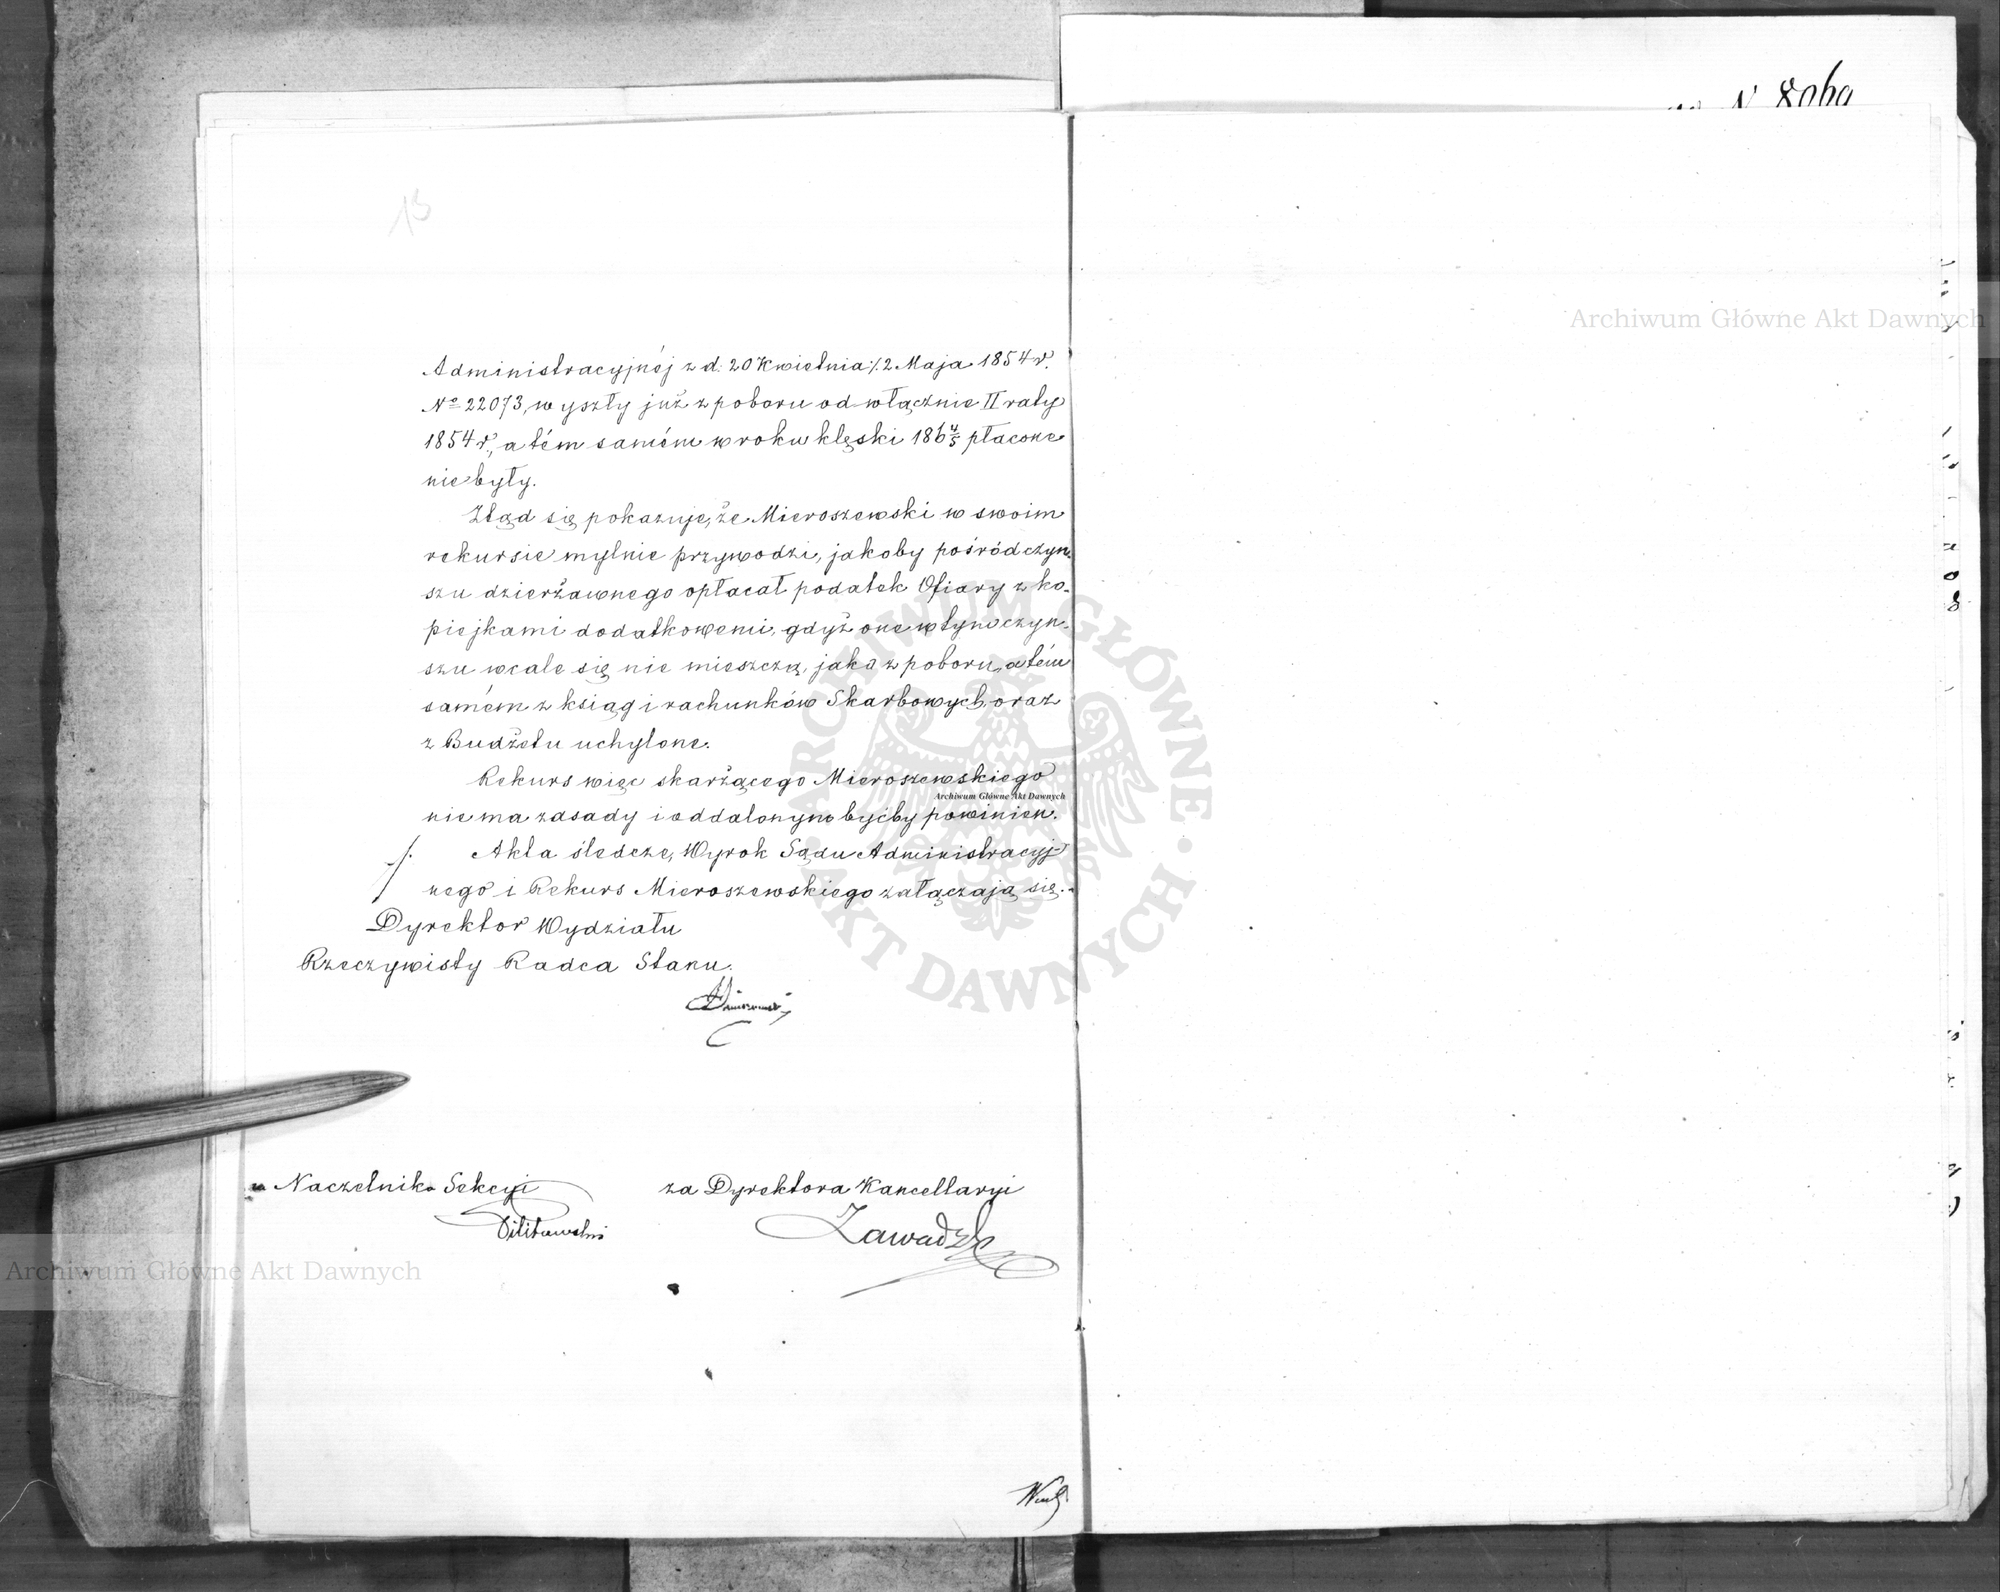 13
Administracyjnéj z d. 20 Kwietnia/2. Maja 1854 r.
No 22073, wyszły już z poboru od włącznie II raty
1854 r., a tém samém w roku klęski 186 4/5 płacone
nie były.
Ztąd się pokazuje, że Mieroszewski w swoim
rekursie mylnie przywodzi, jakoby pośród czyn-
szu dzierżawnego opłacał podatek Ofiary z ko-
piejkami dodatkowemi, gdyż one w tym czyn-
szu wcale się nie mieszczą, jako z poboru, a tém
samém z ksiąg i rachunków Skarbowych, oraz
z Budżetu uchylone.
Rekurs więc skarżącego Mieroszewskiego
nie ma zasady i oddalonym byćby powinien.
Akta śledcze, Wyrok Sądu Administracyj-
nego i Rekurs Mieroszewskiego załączają się.
Dyrektor Wydziału
Rzeczywisty Radca Stanu.
Naczelnika Sekcyi
za Dyrektora Kancellaryi
Zawadzki
Archiwum Główne Akt Dawnych
Archiwum Główne Akt Dawnych
Archiwum Główne Akt Dawnych
ARCHIWUM GŁÓWNE AKT DAWNYCH